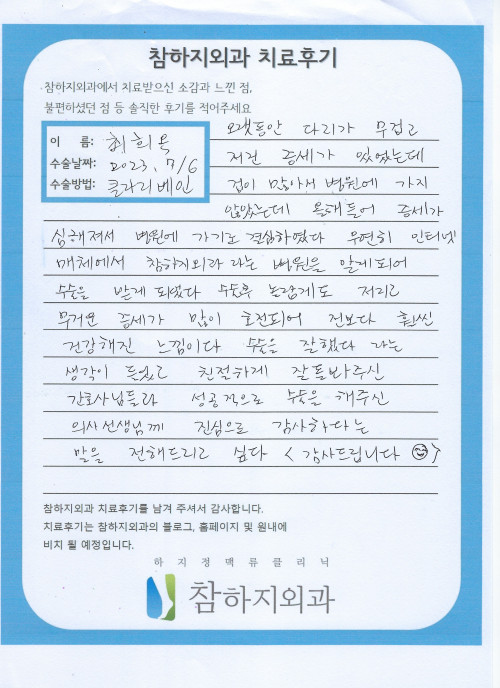 참하지외과 치료후기
참하지외과에서 치료받으신 소감과 느낀 점,
불편하셨던 점 등 솔직한 후기를 적어주세요
이 름: 최희옥
수술날짜: 2023, 7/6
수술방법: 클라리베인
오랫동안 다리가 무겁고
저린 증세가 있었는데
겁이 많아서 병원에 가지
않았는데 올해들어 증세가
심해져서 병원에 가기로 결심하였다 우연히 인터넷
매체에서 참하지외과 라는 병원을 알게되어
수술을 받게 되었다 수술후 놀랍게도 저리고
무거운 증세가 많이 호전되어 전보다 훨씬
건강해진 느낌이다 수술을 잘했다 라는
생각이 들었고 친절하게 잘돌봐주신
간호사님들과 성공적으로 수술을 해주신
의사선생님께 진심으로 감사하다는
말을 전해드리고 싶다 < 감사드립니다 ☺>
참하지외과 치료후기를 남겨 주셔서 감사합니다.
치료후기는 참하지외과의 블로그, 홈페이지 및 원내에
비치 될 예정입니다.
하지정맥류클리닉
참하지외과